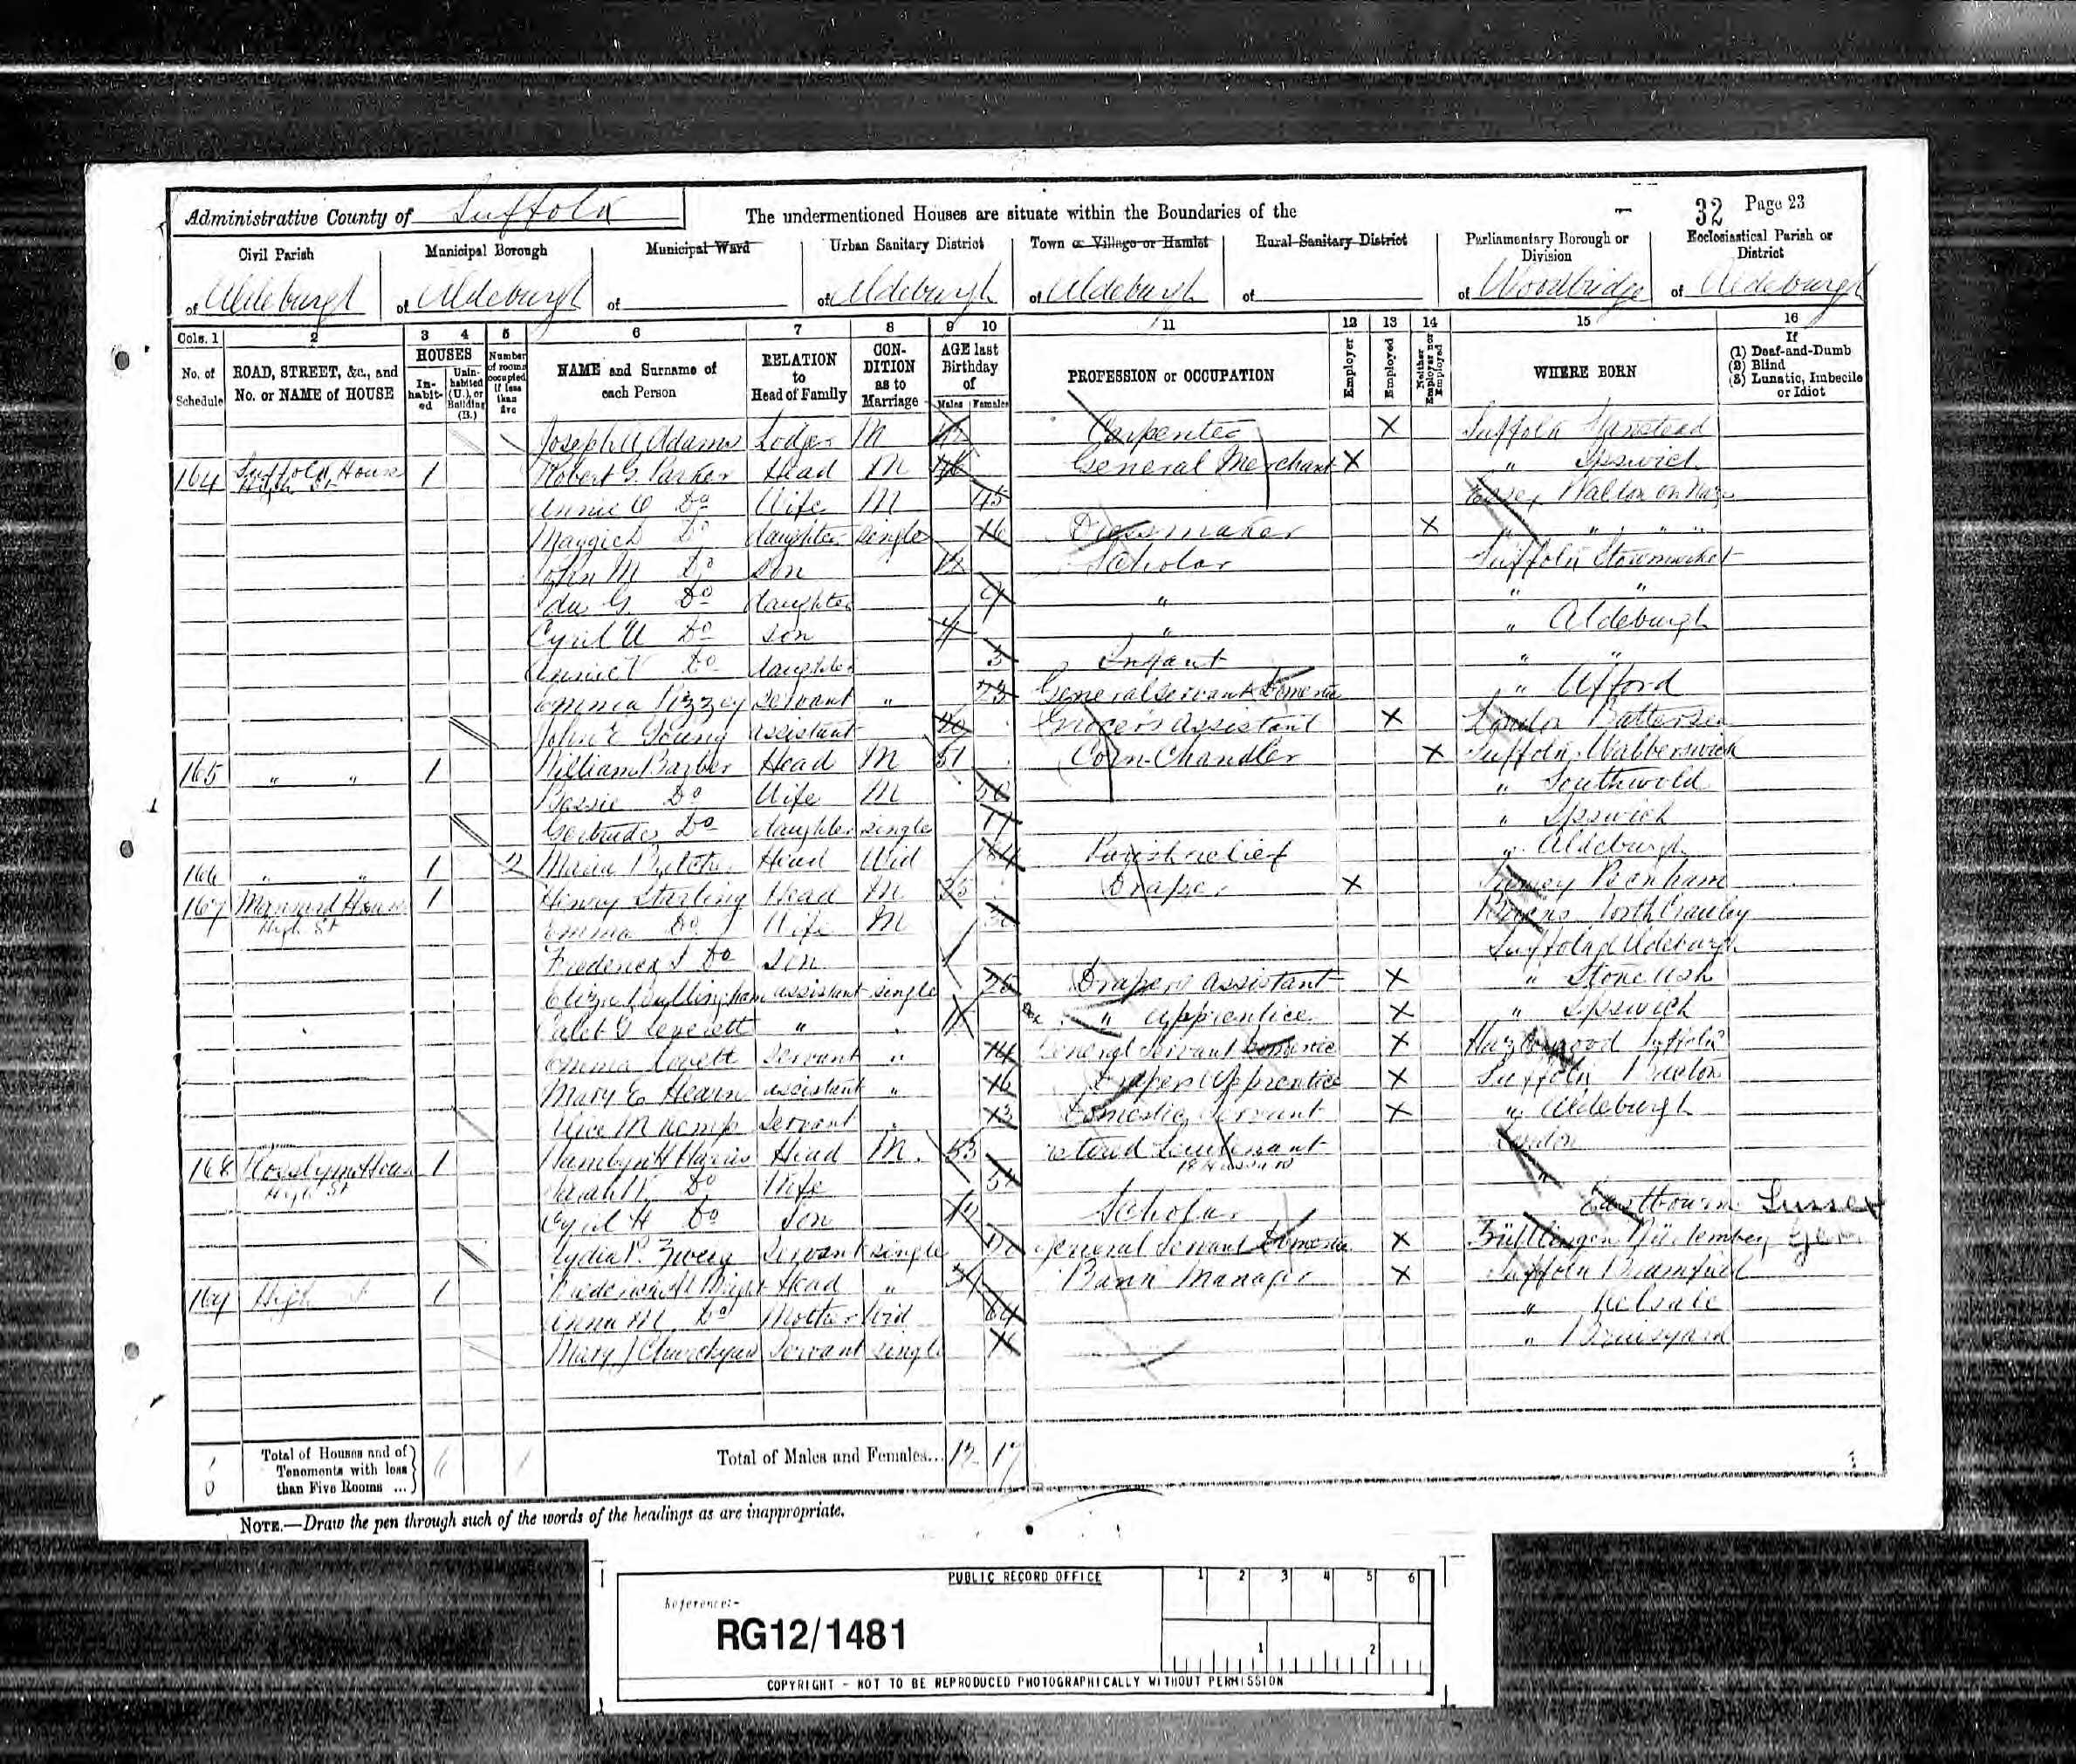 Administrative County of Suffolk The undermentioned Houses are situate within the Boundaries of the 32 Page 23
Civil Parish Municipal Borough Municipal Ward Urban Sanitary District Town or Village or Hamlet Rural Sanitary District Parliamentary Borough or Division Ecclesiastical Parish or District
of Aldeburgh of Aldeburgh of of Aldeburgh of Aldeburgh of of Woodbridge of Aldeburgh
Cols. 1 2 3 4 5 6 7 8 9 10 11 12 13 14 15 16
No. of Schedule ROAD, STREET, &c., and No. or NAME of HOUSE HOUSES In-habit-ed Unin-habited (U.), or Building (B.) Number of rooms occupied if less than five NAME and Surname of each Person RELATION to Head of Family CON-DITION as to Marriage AGE last Birthday of Males Females PROFESSION or OCCUPATION Employer Employed Neither Employer nor Employed WHERE BORN If (1) Deaf-and-Dumb (2) Blind (3) Lunatic, Imbecile or Idiot
Joseph A Adams Lodger M Carpenter X Suffolk
164 Suffolk House High St 1 Robert G. Parker Head M General Merchant X " Ipswich
Annie Do Wife M 45 Essex Walton on Naze
Maggie Do daughter single 16 Dressmaker X " " " "
John M Do Son 12 Scholar Suffolk Stowmarket
Ida G. Do daughter 9 " " "
Cyril Do Son " " Aldeburgh
Annie V Do daughter 3 Infant " "
Emma Pizzey Servant " 23 General Servant Domestic " Ufford
John E Young assistant 20 Grocers Assistant X London Battersea
165 " " 1 William Barber Head M 51 Corn-Chandler X Suffolk Walberswick
Bessie Do Wife M 50 " Southwold
Gertrude Do daughter single 17 " Ipswich
166 " " 1 2 Maria Head Wid 84 Parish relief " Aldeburgh
167 House High St 1 Henry Starling Head M 35 Draper X Benham
Emma Do Wife M Bucks North Crawley
Frederick Do Son 1 Suffolk Aldeburgh
Eliza Bullingham assistant single Drapers assistant X "
Caleb G Leverett " " " Apprentice X " Ipswich
Emma Servant " 14 General Servant Domestic X Suffolk
Mary E Hearn assistant " 16 Drapers Apprentice X Suffolk
Alice M Kemp Servant " 13 Domestic Servant X " Aldeburgh
168 House High St 1 Harris Head M. 53 retired Lieutenant London
Sarah Do Wife "
Cyril H Do Son Scholar Eastbourne Sussex
Lydia Servant single General Servant Domestic X
169 High St 1 Head " Bank Manager X Suffolk Bramfield
Anna M Do Mother Wid 64 " Kelsale
Mary J Churchyard Servant single " Bruisyard
Total of Houses and of Tenements with less than Five Rooms ... 6 1 Total of Males and Females... 12 17
NOTE.—Draw the pen through such of the words of the headings as are inappropriate.
PUBLIC RECORD OFFICE 1 2 3 4 5 6
Reference:-
RG12/1481
1 2
COPYRIGHT - NOT TO BE REPRODUCED PHOTOGRAPHICALLY WITHOUT PERMISSION